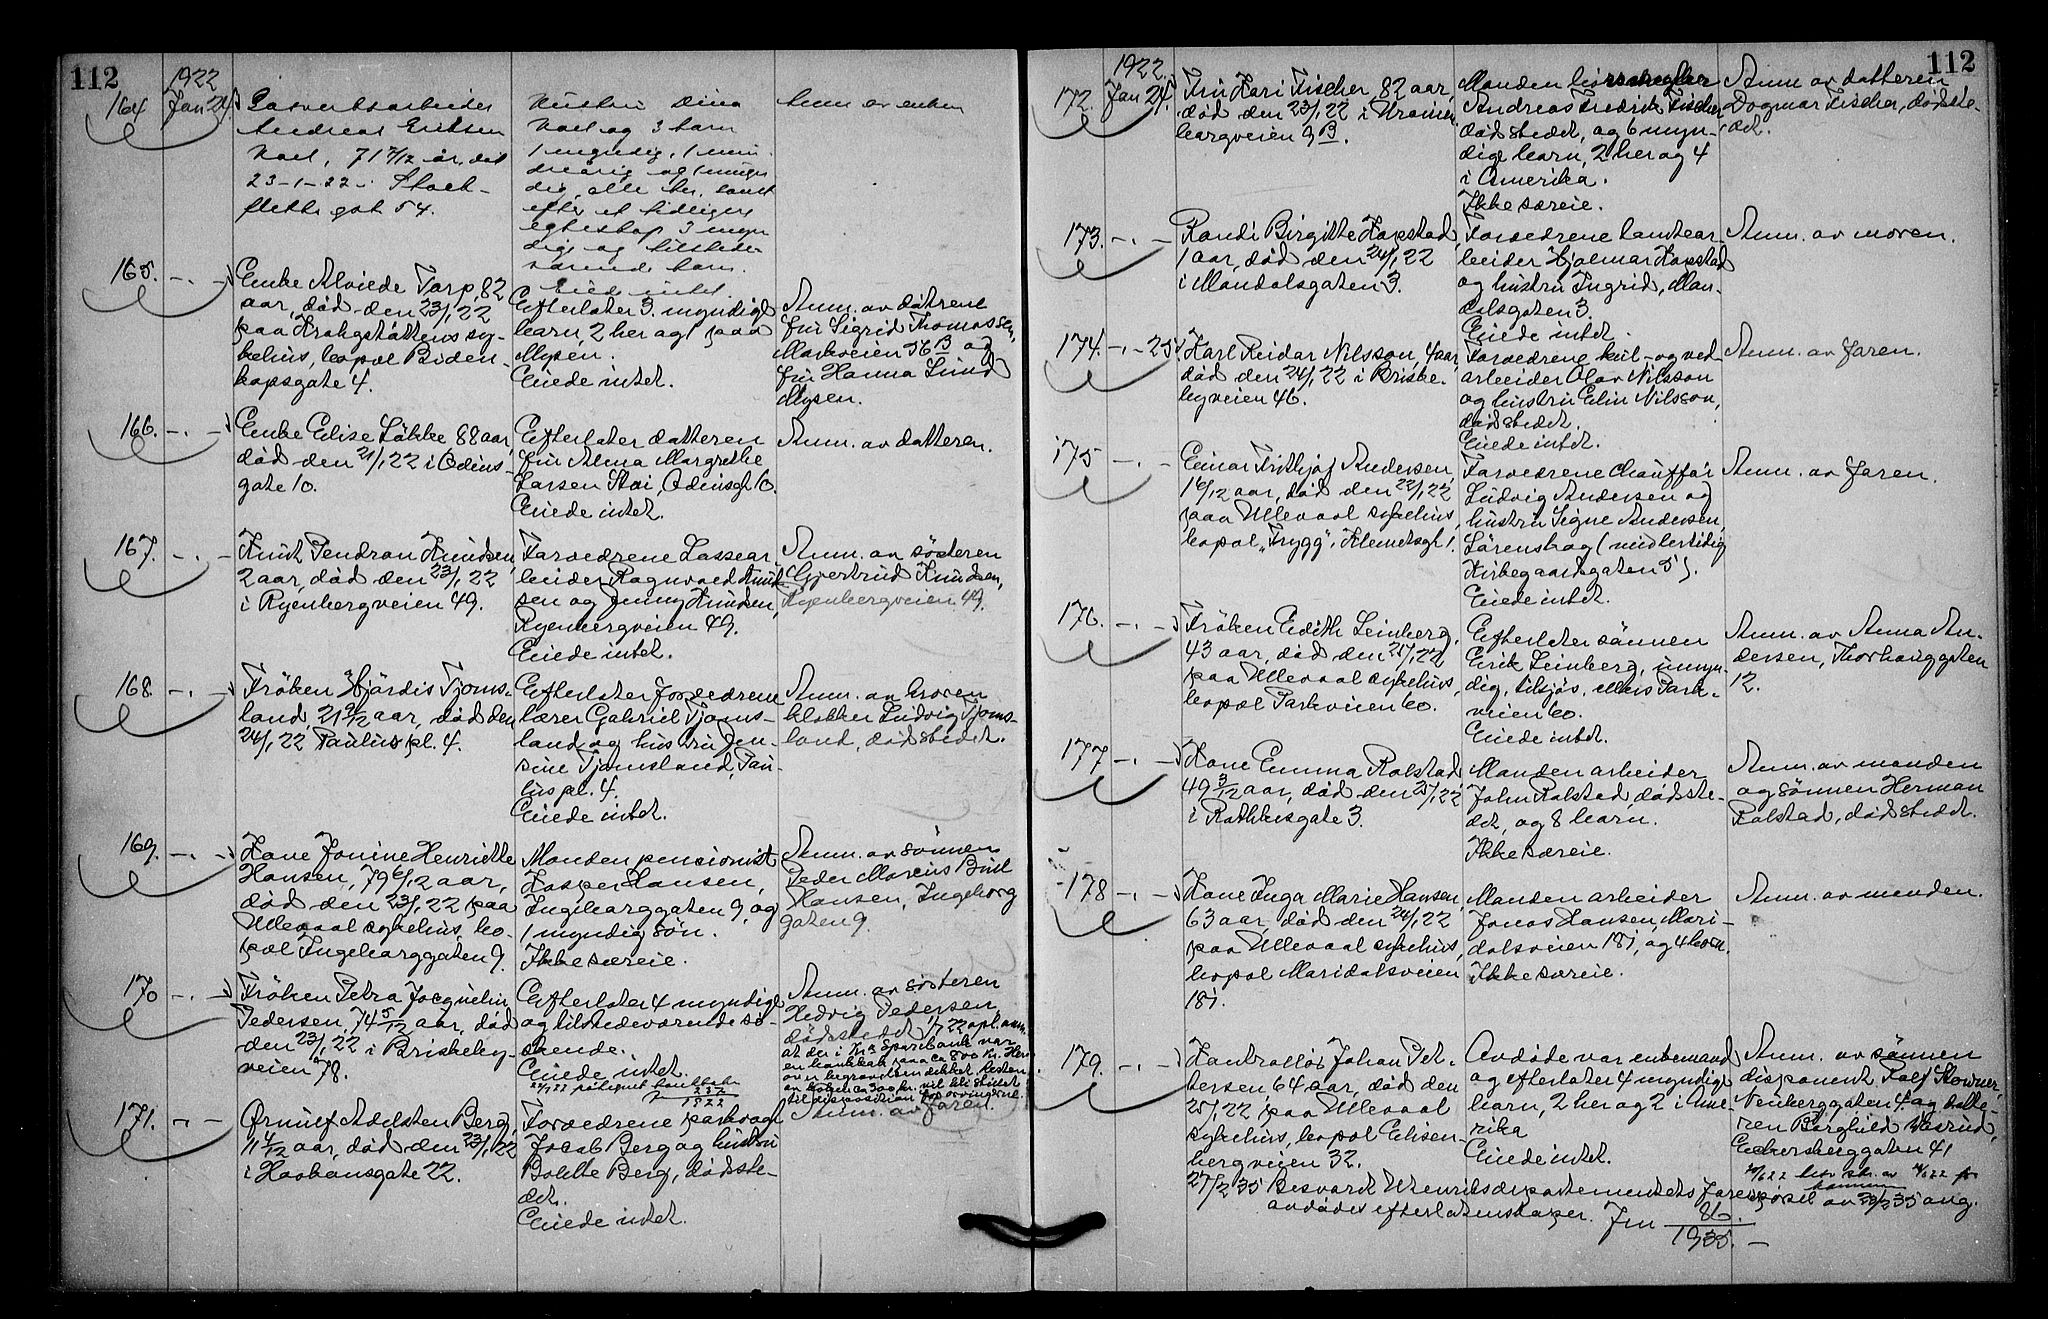 112
1922
164
Jan 24
Gasverksarbeider
Andreas Eriksen
71 7/12 år, död
23-1-22 i
gat. 54.
Hustru Dina
og 3 barn
1 myndig, 1 min
dreårig og 1 umyn
dig, alle her, samt
efter et tidligere
egteskap 3 myn
dige og tilstede
værende barn.
Eied intet.
Anm. av enken
165. -.-
Enke Alviede Torp, 82
aar, död den 23/1 22
paa Krohgstöttens sy-
kehus, bopæl
kapsgate 4.
Efterlater 3 myndige
barn, 2 her og 1 paa
Mysen.
Eiede intet.
Anm. av dötrene
fru Sigrid Thomassen,
Markveien 56B og
fru Hanna Lund
Mysen.
166. -.-
Enke Elise Lökke 88 aar,
död den 21/1 22 i Odins-
gate 10.
Efterlater datteren
fru Alma Margrethe
Larsen Stai, Odinsgt. 10.
Eiede intet.
Anm. av datteren.
167. -.-
Knut Knudsen,
2 aar, död den 23/1 22
i Ryenbergveien 49.
Forældrene
beider Ragnvald Knud-
sen og Jenny Knudsen,
Ryenbergveien 49.
Eiede intet.
Anm. av söstersen
Gjertrud Knudsen,
Ryenbergveien 49.
168 -.-
Fröken Hjördis Tjoms-
land 21 9/12 aar, död den
24/1 22 Pauluspl. 4.
Efterlater forældrene
lærer Gabriel Tjoms-
land og hustru Jen-
sine Tjomsland, Pau-
luspl. 4.
Eiede intet.
Anm. av broren
klokker Ludvig Tjoms-
land, dödstedet.
169. -.-
Kone Jonine Henriette
Hansen, 79 6/12 aar,
död den 23/1 22 paa
Ullevaal sykehus, bo-
pæl Ingeborggaten 9.
Manden pensionist
Kasper Hansen,
Ingeborggaten 9, og
1 myndig sön.
Ikke særeie.
Anm. av sönnen
Peder Marcus Buul
Hansen, Ingeborg
gaten 9.
170 -.-
Fröken Petra Jacqueline
Pedersen, 74 5/12 aar, död
den 23/1 22 i Briskeby-
veien 78.
Efterlater 4 myndige
og tilstedeværende sö-
skende.
Eiede intet.
1922
Anm. av sösteren
Hedvig Pedersen,
dödstedet. 22 opl. anm.
at der i Kr.a Sparebank var
en bankbok paa ca 800 kr. Her
av er begravelsen dekket. Resten
av boken ca 300 kr. vil bli stillet
til disposition for arvingerne.
171. -.-
Ørnulf Adelsten Berg,
11 4/12 aar, död den 23/1 22
i Haakonsgate 22.
Forældrene parkvagt
Jacob Berg og hustru
Bolette Berg, dödste-
det.
Eiede intet.
Anm. av faren.
112
1922.
172. Jan 24.
Fru Kari Fischer, 82 aar,
död den 23/1 22 i
bergveien 9B.
Manden
Andreas Fredrik Fischer,
dödstedet, og 6 myn-
dige barn, 2 her og 4
i Amerika.
Ikke særeie.
Anm. av datteren
Dagmar Fischer, dödste-
det.
173. -.-
Randi Birgitte Hapstad,
1 aar, död den 24/1 22
i Mandalsgaten 3.
Forældrene
beider Hjalmar Hapstad
og hustru Ingrid, Man-
dalsgaten 3.
Eiede intet.
Anm. av moren.
174. -.- 25
Karl Reidar Nilsson, 4 aar,
död den 24/1 22 i Briske-
byveien 46.
Forældrene kul- og ved-
arbeider Olav Nilsson
og hustru Elin Nilsson,
dödstedet.
Eiede intet.
Anm. av faren.
175 -.-
Einar Frithjof Andersen,
1 6/12 aar, död den 22/1 22
paa Ullevaal sykehus,
bopæl "Trygg", Klemetsgt. 1.
Forældrene Chaufför
Ludvig Andersen og
hustru Signe Andersen,
Lörenskog (midlertidig
Kirkegaardsgaten 5).
Eiede intet.
Anm. av faren.
176. -.-
Fröken Edith Leinberg,
43 aar, död den 21/1 22
paa Ullevaal sykehus,
bopæl Parkveien 60.
Efterlater sönnen
Erik Leinberg, umyn-
dig, tilsjös, ellers Park-
veien 60.
Eiede intet.
Anm. av Anna An-
dersen, Thorhauggaten
12.
177 -.-
Kone Emma Rolstad
49 3/12 aar, död den 25/1 22
i Rathkesgate 3.
Manden arbeider
John Rolstad, dödste-
det, og 8 barn.
Ikke særeie.
Anm. av manden
og sönnen Herman
Rolstad, dödstedet.
178 -.-
Kone Inga Marie Hansen,
63 aar, död den 24/1 22
paa Ullevaal sykehus,
bopæl Maridalsveien
181.
Manden arbeider
Jonas Hansen, Mari-
dalsveien 181, og 4 barn.
Ikke særeie.
Anm. av manden.
179. -.-
Kontrollör Johan Pet-
tersen, 64 aar, död den
25/1 22 paa Ullevaal
sykehus, bopæl Elisen-
bergveien 32.
Avdöde var enkemand
og efterlater 4 myndige
barn, 2 her og 2 i Ame-
rika
Eiede intet.
Anm. av sönnen
disponent Rolf
gaten 4 og datte-
ren Borghild
Eckersberggaten 41
27/2 35 Besvart Utenriksdepartementets forespörsel av 22/2 35 ang.
avdödes efterlatenskaper. Jnr 86.
1935.-